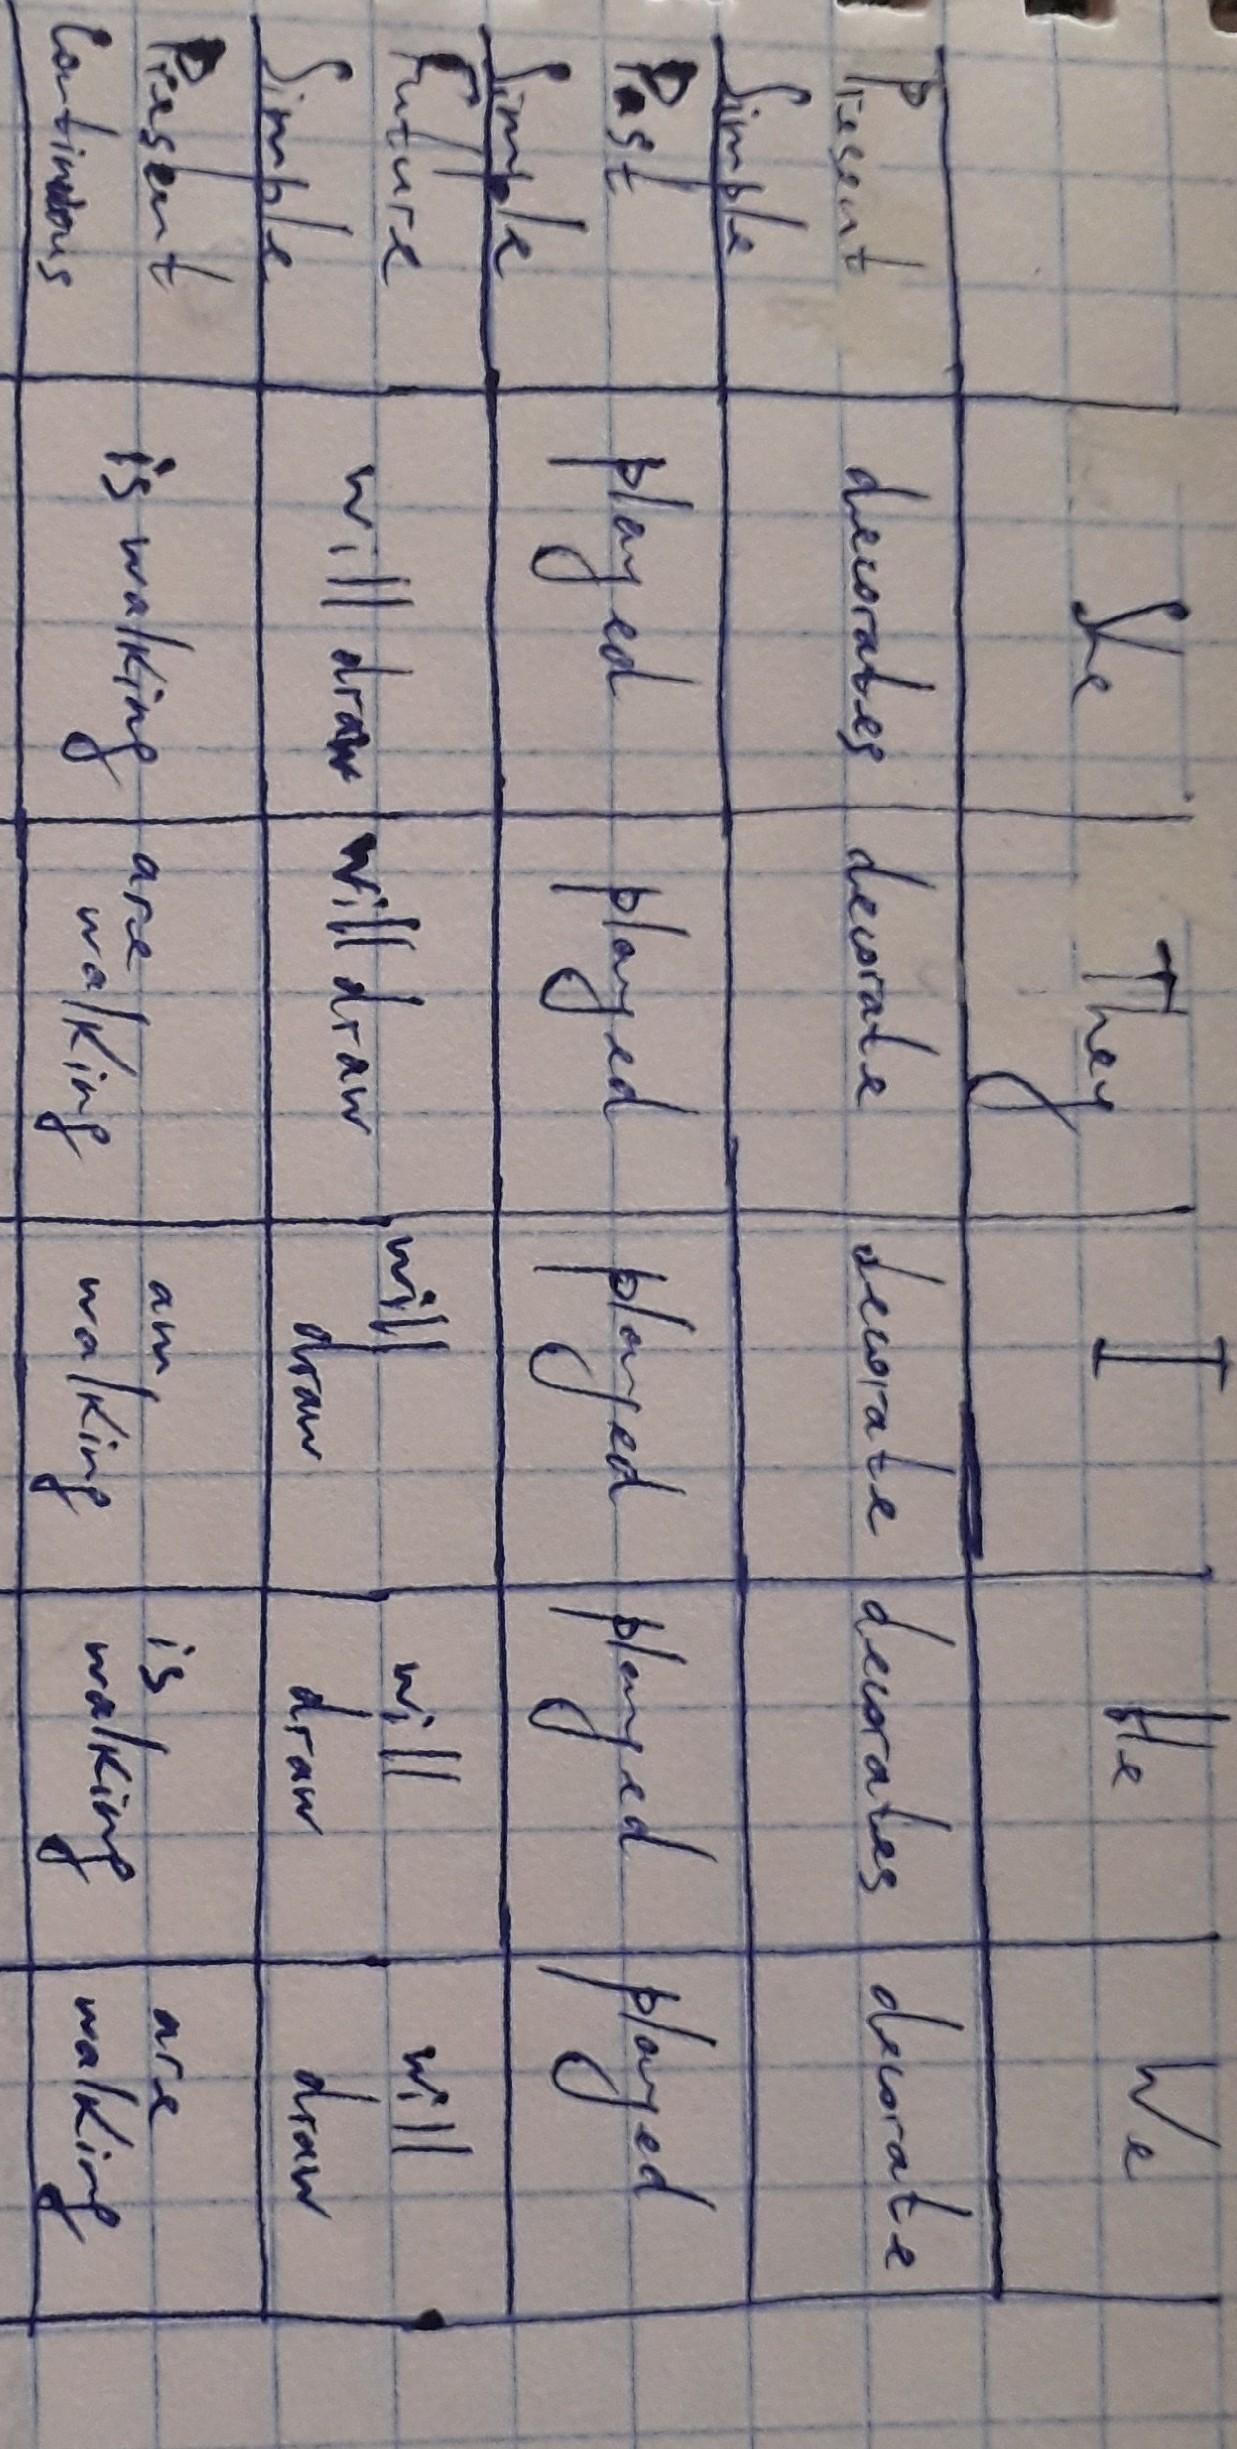 She They I He We
Present Simple decorates decorate decorate decorates decorate
Past Simple played played played played played
Future Simple will draw will draw will draw will draw will draw
Present Continuous is walking are walking am walking is walking are walking